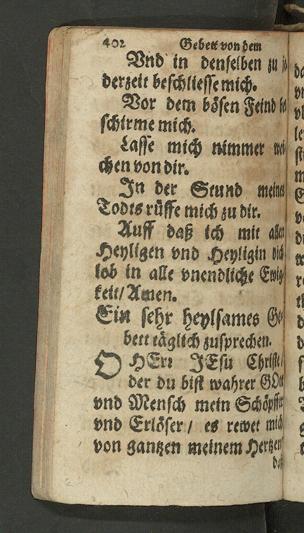 402 Gebett von dem
Vnd in denselben zu
derzeit beschliesse mich.
Vor dem bösen Feind
schirme mich.
Lasse mich nimmer
chen von dir.
In der Stund meines
Todts rüffe mich zu dir.
Auff daß ich mit allen
Heyligen vnd Heyligin dich
lob in alle vnendliche Ewig
keit/ Amen.
Ein sehr heylsames Ge-
bett täglich zusprechen.
O HErr JEsu Christe/
der du bist wahrer GOtt
vnd Mensch mein Schöpffer
vnd Erlöser/ es rewet mich
von gantzen meinem Hertzen